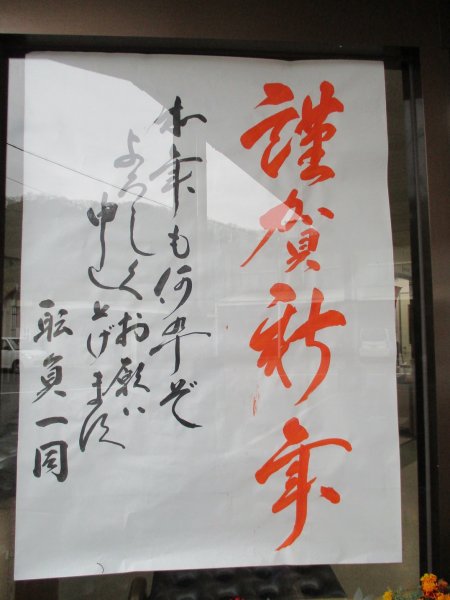 謹賀新年
本年も何卒ぞ
よろしくお願い
申し上げます
職員一同